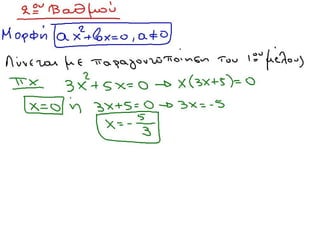 2ου Βαθμού
Μορφή αx²+βx=0, α≠0
Λύνεται με παραγοντοποίηση του 1ου μέλους
πχ 3x²+5x=0 → x(3x+5)=0
x=0 ή 3x+5=0 → 3x=-5
x=-5/3